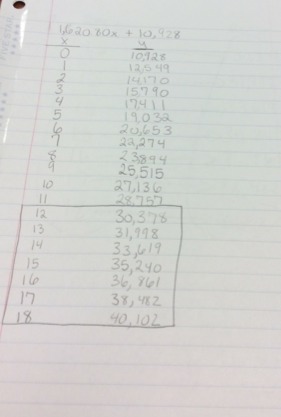 1,620.80x + 10,928
x y
0 10,928
1 12,549
2 14,170
3 15,790
4 17,411
5 19,032
6 20,653
7 22,274
8 23,894
9 25,515
10 27,136
11 28,757
12 30,378
13 31,998
14 33,619
15 35,240
16 36,861
17 38,482
18 40,102